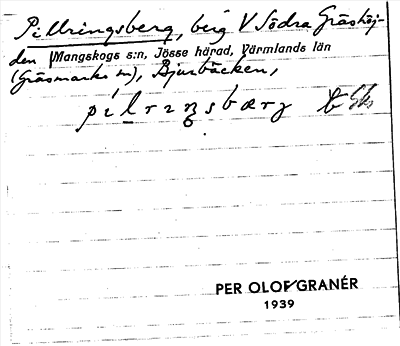 Pillringsberg, berg V Södra Gräshöj-
den Mangskogs s:n, Jösse härad, Värmlands län
(Gräsmarks sn), Bjurbäcken,
PER OLOF GRANÉR
1939